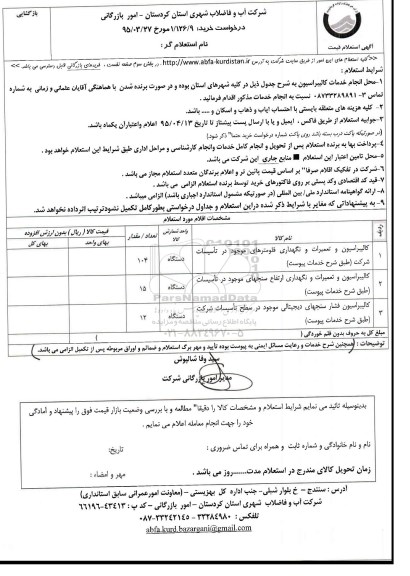 شرکت آب و فاضلاب شهری استان کردستان - امور بازرگانی
بازگشایی
درخواست خرید: ۱/۱۲۶/۹ مورخ ۹۵/۰۳/۲۷
نام استعلام گر :
آگهی استعلام قیمت
<<کلیه استعلام های این امور از طریق سایت شرکت به آدرس http://www.abfa-kurdistan.ir، در بخش سوم صفحه نخست، خریدهای بازرگانی قابل دسترسی می باشد >>
شرایط استعلام :
۱-محل انجام خدمات کالیبراسیون به شرح جدول ذیل در کلیه شهرهای استان بوده و در صورت برنده شدن با هماهنگی آقایان عثمانی و زمانی به شماره
تماس ۳-۰۸۷۳۳۲۸۹۸۹۱ نسبت به انجام خدمات مذکور اقدام فرمائید.
۲- کلیه هزینه های متعلقه بایستی با احتساب ایاب و ذهاب و اسکان و .... باشد.
۳-جوابیه استعلام از طریق فاکس، ایمیل و یا با ارسال پست پیشتاز تا تاریخ ۹۵/۰۴/۱۳ اعلام واعتباران یکماه باشد.
(در صورتیکه پاکت دربسته باشد روی پاکت شماره درخواست خرید حتما" ذکر شود)
۴-پرداخت بها به برنده استعلام پس از تحویل و انجام کامل خدمات وانجام کارشناسی و مراحل اداری طبق شرایط این استعلام خواهد بود.
۵-محل تامین اعتبار این استعلام ■ منابع جاری این شرکت می باشد.
۶-شرکت در تفکیک اقلام صرفا" بر اساس قیمت پائین تر و اعلام برندگان متعدد استعلام مجاز می باشد.
۷-قید کد اقتصادی وکد پستی بر روی فاکتورهای خرید توسط برنده استعلام الزامی می باشد.
۸- ارائه گواهینامه استاندارد ملی/بین المللی (در صورتیکه مشمول استاندارد اجباری باشد) الزامی میباشد.
۹- به پیشنهاداتی که مغایر با شرایط ذکر شده دراین استعلام و جداول درخواستی بطورکامل تکمیل نشودترتیب اثرداده نخواهد شد.
مشخصات اقلام مورد استعلام
ردیف
نام کالا
واحد شمارش کالا
تعداد / مقدار
قیمت کالا ( ریال ) بدون ارزش افزوده
بهای واحد
بهای کل
۱
کالیبراسیون و تعمیرات و نگهداری فلومترهای موجود در تأسیسات شرکت (طبق شرح خدمات پیوست)
دستگاه
۱۰۴
۲
کالیبراسیون و تعمیرات و نگهداری ارتفاع سنجهای موجود در تأسیسات (طبق شرح خدمات پیوست)
دستگاه
۱۵
۳
کالیبراسیون فشار سنجهای دیجیتالی موجود در سطح تأسیسات شرکت (طبق شرح خدمات پیوست)
دستگاه
۱۲
ParsNamadData
پایگاه اطلاع رسانی مناقصه و مزایده
۰۲۱-۸۸۳۴۹۶۷۰-۵
مبلغ کل به حروف بدون قلم خوردگی (
)
توضیحات : همچنین شرح خدمات و رعایت مسائل ایمنی به پیوست بوده تأیید و مهر برگ استعلام و ضمائم و اوراق مربوطه پس از تکمیل الزامی می باشد.
سید وفا شالیوش
مدیر امور بازرگانی شرکت
بدینوسیله تائید می نمایم شرایط استعلام و مشخصات کالا را دقیقا" مطالعه و با بررسی وضعیت بازار قیمت فوق را پیشنهاد و آمادگی
خود را جهت انجام معامله اعلام می نمایم .
نام و نام خانوادگی و شماره ثابت و همراه برای تماس ضروری :
تاریخ:
زمان تحویل کالای مندرج در استعلام مدت.......روز می باشد .
مهر و امضاء :
آدرس : سنندج - خ بلوار شبلی- جنب اداره کل بهزیستی - (معاونت امورعمرانی سابق استانداری)
شرکت آب و فاضلاب شهری استان کردستان - امور بازرگانی - کد پ : ۴۳۴۱۳-۶۶۱۹۶
تلفکس : ۳۳۲۸۴۹۸۰ - ۳۳۲۴۲۱۴۵-۰۸۷
abfa.kurd.bazargani@gmail.com